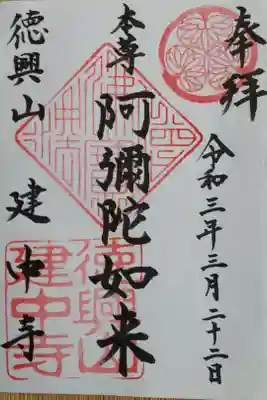 奉拝
令和三年三月二十二日
本尊
阿彌陀如来
徳興山
建中寺
徳興山
建中寺